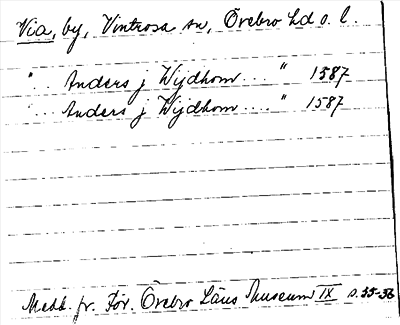 Via, by, Vintrosa sn, Örebro hd o. l.
".. Anders j Wijdhom..." 1587
"... Anders j Wijdhom...." 1587
Medd. fr. För. Örebro Läns Museum IX s. 35-36